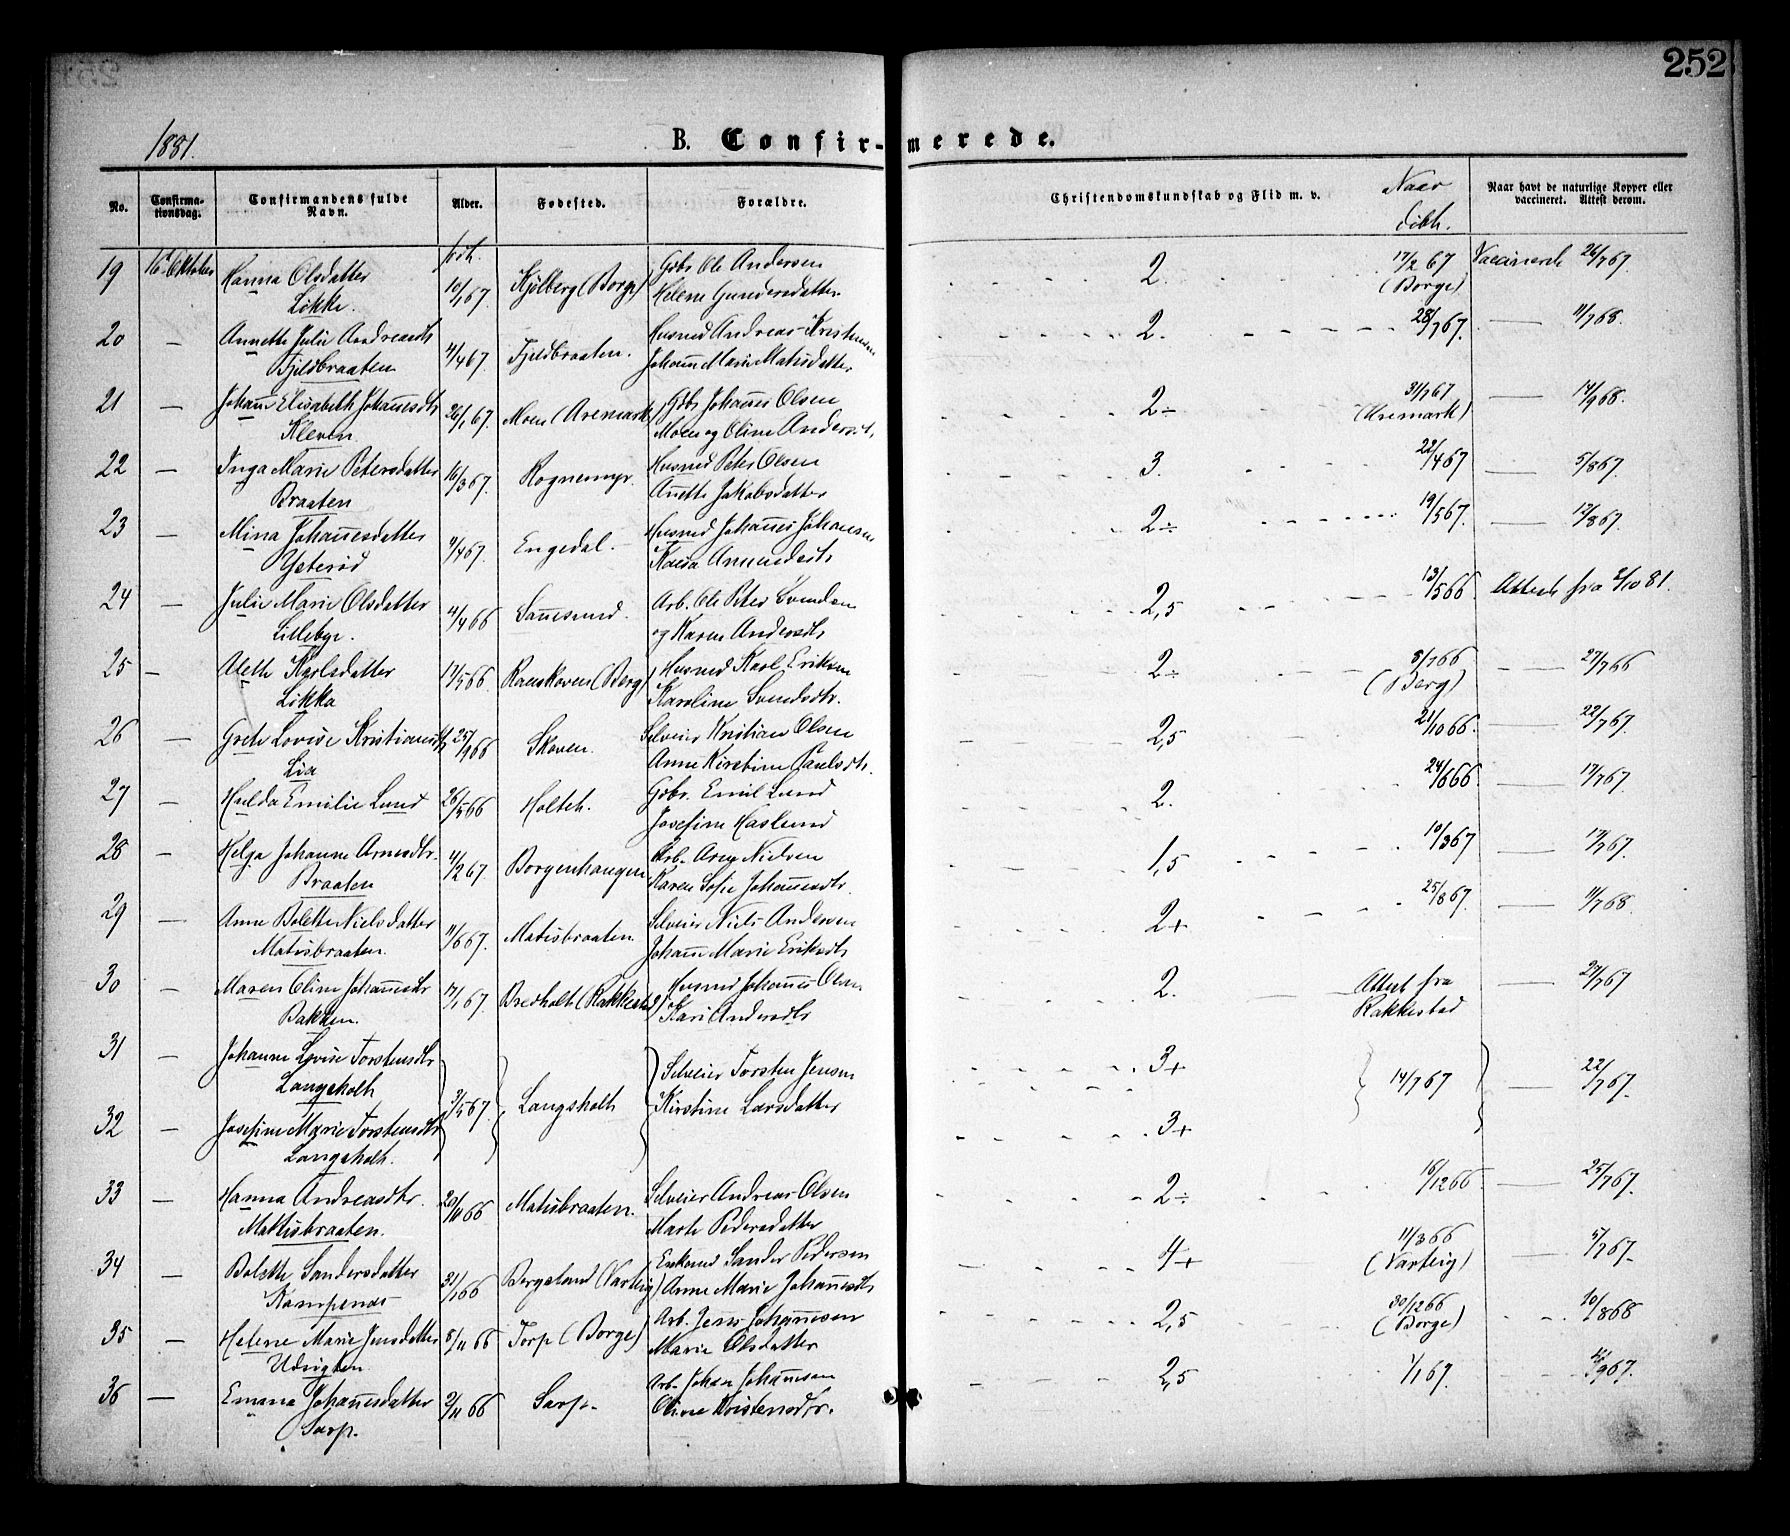 252
1881.
B. Confirmerede.
No. Confirmationsdag. Confirmandens fulde Navn. Alder. Fødested. Forældre. Christendomskundskab og Flid m. v. Naar døbt. Naar havt de naturlige Kopper eller vaccineret. Attest derom.
19 16 Oktober Hanna Olsdatter 10/1 67. Kjølberg (Borge) Gbr. Ole Andersen 2. 17/2 67 Vaccinerede 26/7 67.
Løkke. Helene Gundersdatter (Borge)
20 — Annette Julie Andreasdt. 4/4 67. Fjeldbraaten. Husmd Andreas Kristensen 2. 28/7 67. — 11/7 68.
Fjeldbraaten Johanne Marie Matisdatter
21 — Johanne Elisabeth Johannesdtr 26/1 67. Moen (Aremark) Gbr. Johannes Olsen 2÷ 31/7 67 — 14/9 68.
Kleven Moen og Oline Andersdt. (Aremark)
22 — Inga Marie Petersdatter 16/3 67. Rognemyr. Husmd Peter Olsen 3. 22/4 67 — 5/8 67.
Braaten Anette Jakobsdatter
23 — Mina Johannesdatter 4/4 67. Engedal. Husmd Johannes Johansen 2÷ 19/5 67. — 12/8 67.
Ysterød Amundsdt.
24 — Julie Marie Olsdatter 4/4 66 Sannesund. Arb. Ole Peter Svendsen 2,5 13/5 66 Attest fra 2/10 81.
Lillebye. og Karen Andersdt.
25 — Karlsdatter 17/5 66. Ravnskoven (Berg) Husmd Karl Eriksen 2÷ 8/7 66 — 27/7 66
Løkka Karoline Svendsdtr. (Berg)
26 — Grete Lovise Kristiansdt. 25/9 66 Skoven. Selveier Kristian Olsen 2,5 21/10 66. — 22/7 67.
Lia Anne Kirstine Paulsdtr.
27 — Hulda Emilie Lund 26/5 66 Holteh. Gbr. Emil Lund 2. 24/6 66 — 17/7 67.
Josefine Haslund
28 — Helga Johanne Arnesdtr. 4/2 67. Borgenhaugen Arb. Arne Nielsen 1,5 10/3 67 17/7 67.
Braaten Karen Sofie Johannesdtr.
29 — Anne Bolette Nielsdatter 11/6 67. Matisbraaten. Selveier Niels Andersen 2+ 25/8 67. 11/7 68.
Matisbraaten. Johanne Marie Eriksdt.
30 — Maren Oline Johannesdtr 17/1 67. Bredholt (Rakkestad) Husmd Johannes Olsen 2. — Attest fra 27/7 67
Bakken. Kari Andersdtr Rakkestad
31 — Johanne Lovise Torstensdtr 3/5 67. Langsholt Selveier Torsten Jensen 3+ 14/7 67 — 22/7 67.
Langsholt Kirstine Larsdatter
32 — Josefine Marie Torstensdtr 3+
Langsholt.
33 — Hanna Andreasdtr. 20/11 66 Matisbraaten. Selveier Andreas Olsen 2÷ 16/12 66. — 25/7 67.
Mattisbraaten. Marte Pedersdatter
34 — Bolette Sandersdatter 31/1 66 Bergsland (Varteig) Enkemd Sander Pedersen 4+ 11/3 66 — 5/7 67.
Kampenes Anne Marie Johannesdtr (Varteig)
35 — Helene Marie Jensdatter 8/11 66 Torp (Borge) Arb. Jens Johannesen 2,5 30/12 66 10/8 68
Udsigten Marie Olsdatter (Borge)
36 — Emma Johannesdatter 2/11 66 Sarp. Arb. Johan Johannesen 2,5 1/1 67. 9 67.
Sarp. Oline Kristensdtr.